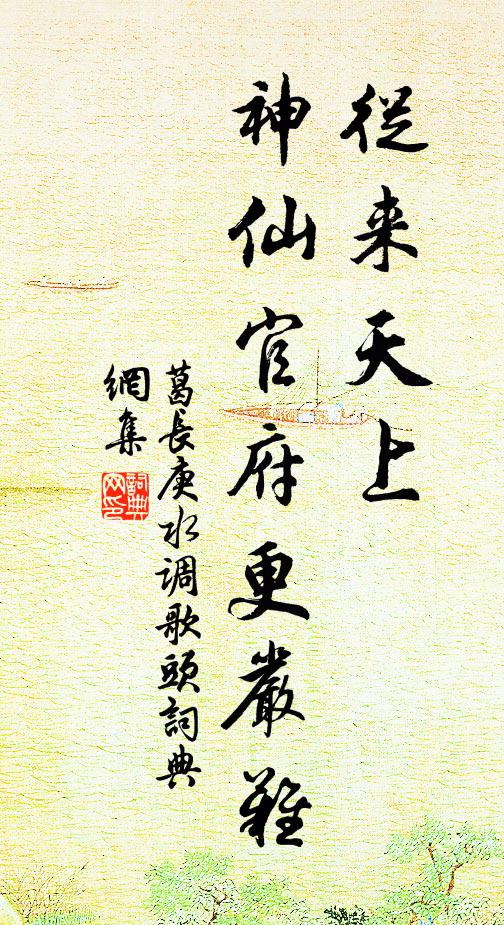 從来天上
神仙官府更嚴難
葛長庚水调歌頭詞典
網集
詞典
网印